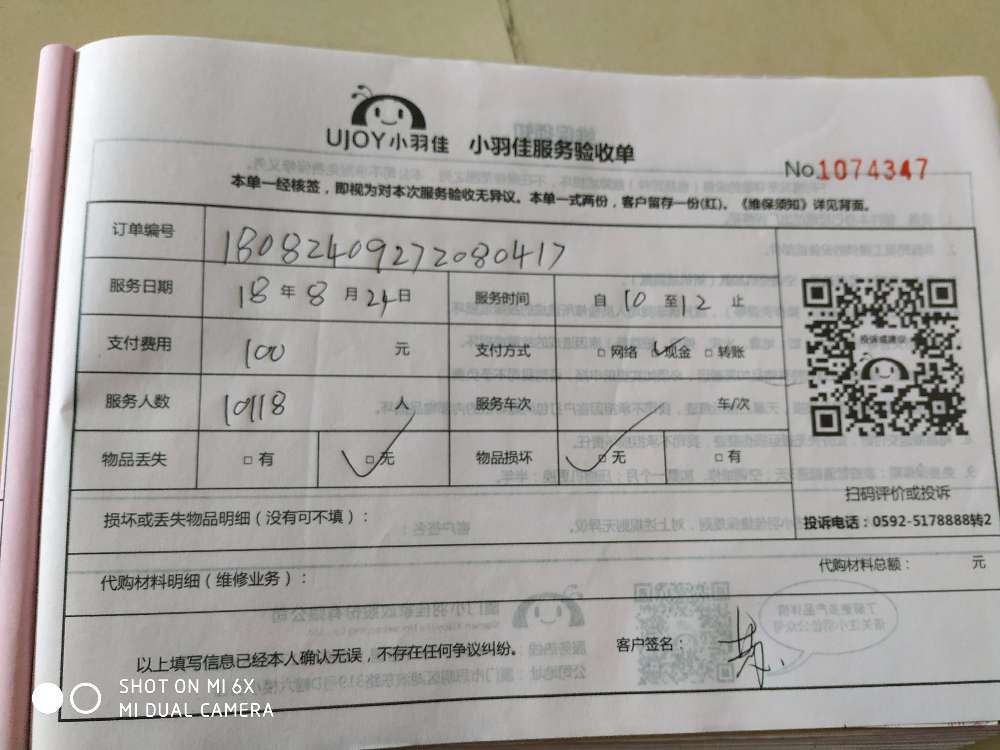 UJOY小羽佳 小羽佳服务验收单
No.1074347
本单一经核签，即视为对本次服务验收无异议。本单一式两份，客户留存一份(红)。《维保须知》详见背面。
订单编号 18082409272080417
服务日期 18 年 8 月 24 日 服务时间 自 10 至 12 止
支付费用 100 元 支付方式 □ 网络 ✓ 现金 □ 转账
服务人数 10118 人 服务车次 车/次
物品丢失 □ 有 ✓□ 无 物品损坏 ✓□ 无 □ 有
投诉或建议
扫码评价或投诉
投诉电话：0592-5178888转2
损坏或丢失物品明细（没有可不填）：
代购材料明细（维修业务）： 代购材料总额： 元
以上填写信息已经本人确认无误，不存在任何争议纠纷。 客户签名：
SHOT ON MI 6X
MI DUAL CAMERA